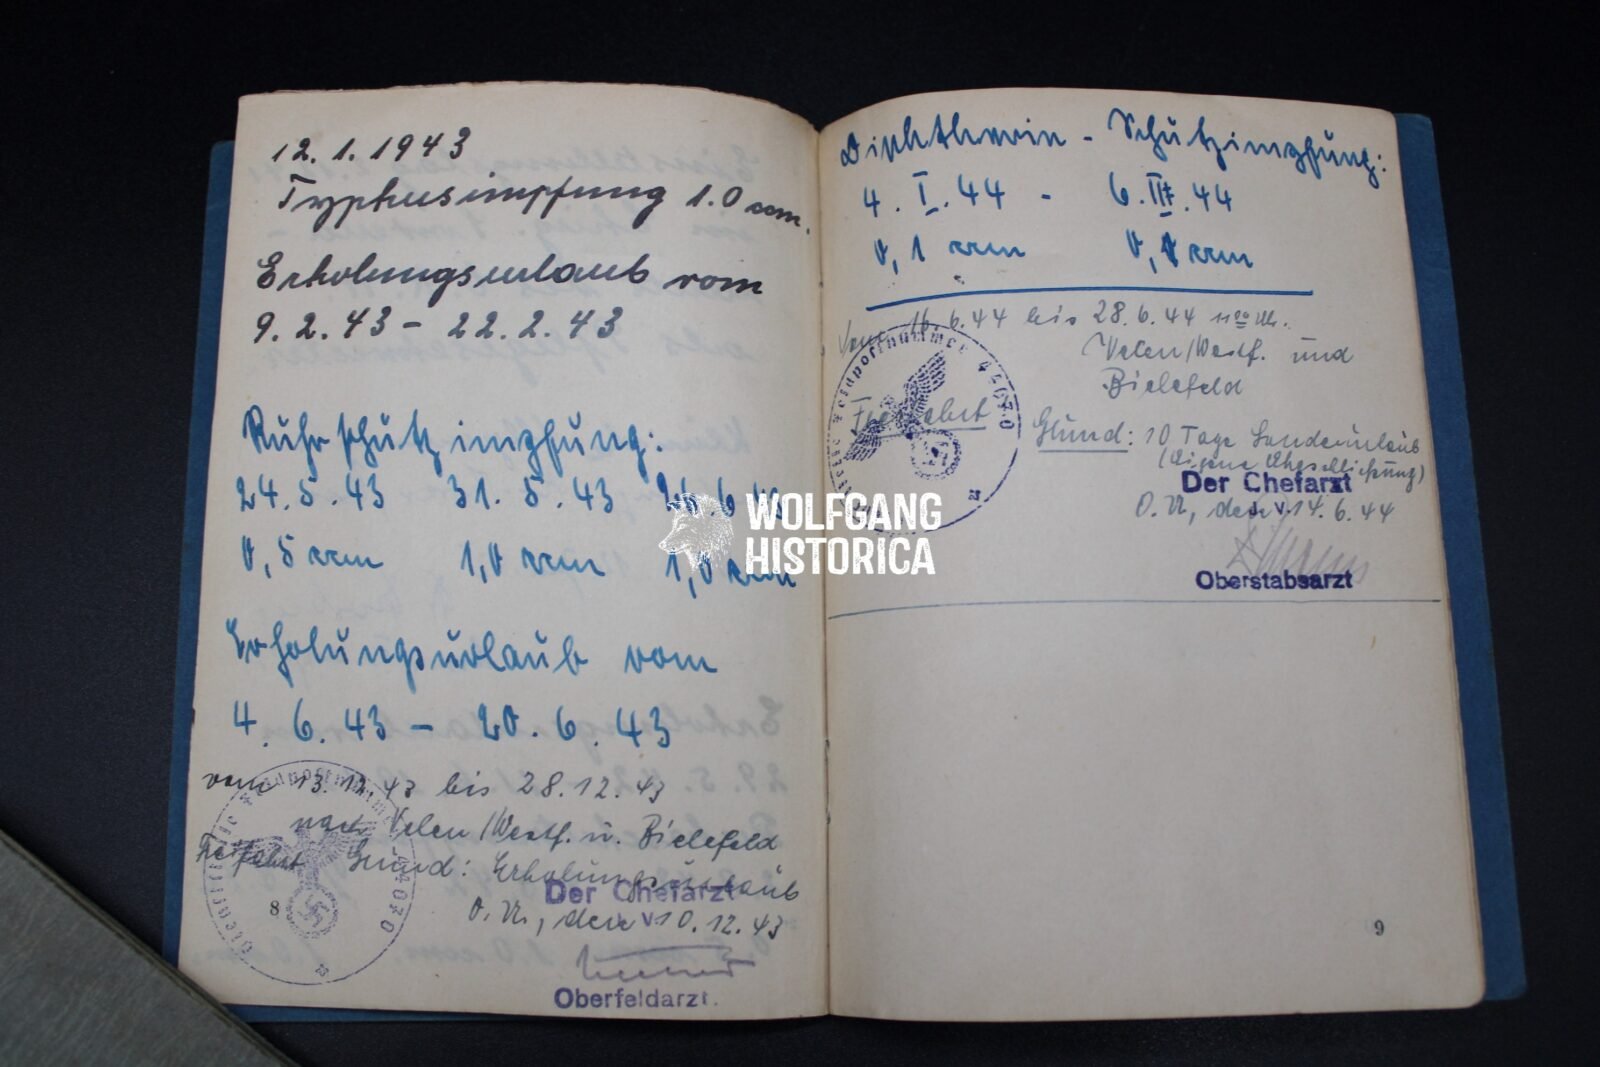 12.1.1943
Typhusimpfung 1.0 ccm.
Erholungsurlaub vom
9.2.43 - 22.2.43
Ruhrschutzimpfung:
24.5.43 31.5.43
0,5 ccm 1,0 ccm 1,0 ccm
Erholungsurlaub vom
4.6.43 - 20.6.43
vom 13.12.43 bis 28.12.43
nach Velen/Westf. u. Bielefeld
Freifahrt Grund: Erholungsurlaub
Der Chefarzt
O.U., den 10.12.43
i.V.
Oberfeldarzt.
Dienststelle Feldpostnummer 44070
8
Diphtherie - Schutzimpfung:
4.I.44 - 6.III.44
0,1 ccm 0,1 ccm
Vom 16.6.44 bis 28.6.44 Uhr.
Velen/Westf. und
Bielefeld
Freifahrt Grund: 10 Tage Sonderurlaub
(Eigene Eheschließung)
Der Chefarzt
O.U., den 14.6.44
i.V.
Oberstabsarzt
Dienststelle Feldpostnummer 44070
9
WOLFGANG
HISTORICA